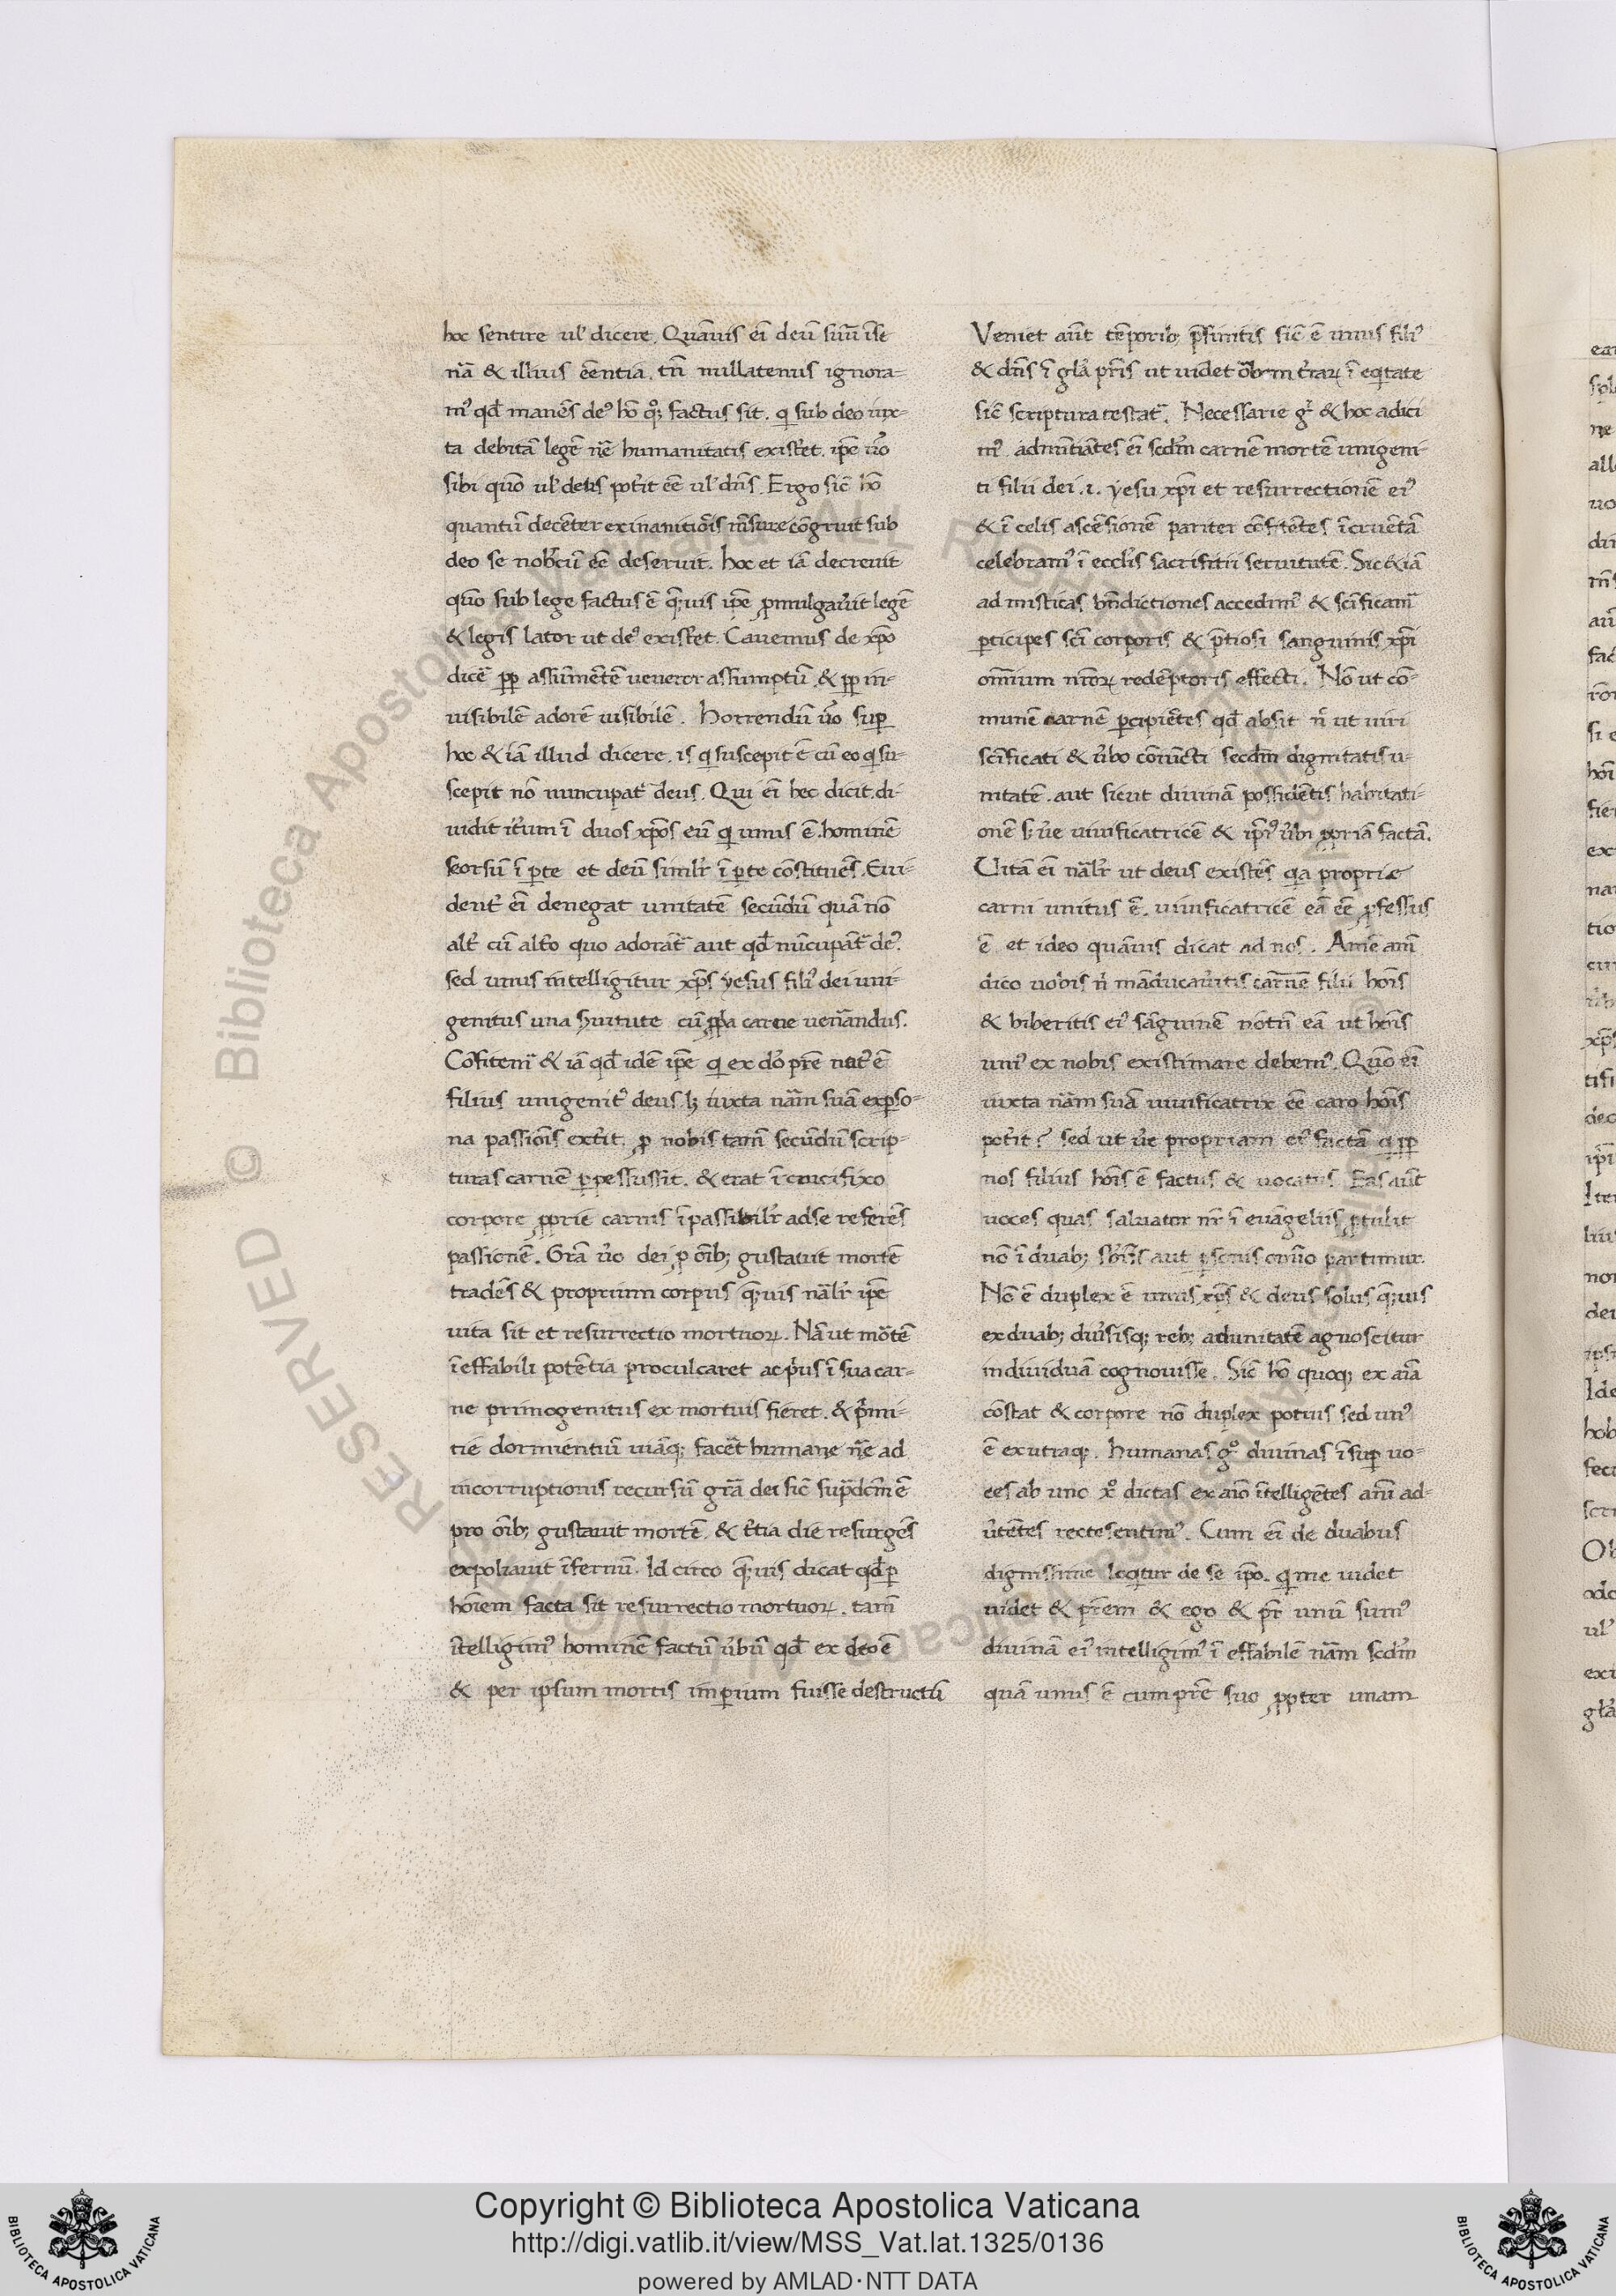 hoc sentire ul' dicere. Quāuis ei deū suū ise
nā & illius eēntia. tn̄ nullatenus ignora-
m' qd manēs de' hō q°; factus sit. q sub deo iux-
ta debitā legē nr̄e humanitatis existet. ipe ūo
sibi quō ul' deus pot'it eē ul' dn̄s. Ergo sic hō
quantū decēter exinanitiōis mēsure cōgruit sub
deo se nobcū eē deseruit. hoc et iā decreuit
quō sub lege factus ē q;uis ipe pmulgau'it legē
& legis lator ut de' existet. Cauemus de xpo
dicē pp assumētē ueneror assumptū & pp in-
uisibilē adorē uisibilē. horrendū ūo sup
hoc & iā illud dicere. is q suscepit ē cū eo q su-
scepit nō nuncupat deus. Qui ei hec dicit. di-
uidit it'um ī duos xpōs eū q unus ē. hominē
seorsū ī pte et deū simil'r ī pte cōstituēs. Eui-
dent' ei denegat unitatē secūdū quā nō
alt' cū alt'o quo adorat' aut qd nūcupāt' de'.
sed unus intelligitur xp̄s yesus fili' dei uni-
genitus una suitute cū ppa carne uenādus.
Cōfitem' & iā qd idē ipe q ex dō prē nat' ē
filius unigenit' deus. l; iuxta nām suā expso-
na passiōis ext'it. p nobis tam̄ secūdū scrip-
turas carnē ppessussit. & erat ī crucifixo
corpore pprie carnis ī passibilr' ad se referēs
passionē. Grā ūo dei p oīb; gustauit mortē
tradēs & proprium corpus q;uis nāl'r ipe
uita sit et resurrectio mortuoꝝ. Nā ut mōtē
ī effabili potētia proculcaret ac p'us ī sua car-
ne primogenitus ex mortuis fieret. & p'mi-
tie dormientiū uiāq; facēt humane nr̄e ad
incorruptionis recursū grā dei sic supdcm̄ ē
pro oīb; gustauit mortē. & t'tia die resurgēs
expoliauit īfernū. Id circo q;uis dicat qd p
hoīem facta sit resurrectio mortuoꝝ. tam̄
ītelligim' hominē factū ūbū qd ex deo ē
& per ipsum mortis imperium fuisse destructū
Veniet aūt tēporib; p̄finitis sic ē unus fili'
& dn̄s ī glā pr̄is ut uidet ōbem t'raꝝ ī eqtate
sic scriptura testat'. Necessarie g' & hoc adici
m'. adnūtiātes ei scdm̄ carnē mortē unigeni-
ti filii dei .i. yesu xpi et resurrectionē ei'
& ī celis ascēsionē pariter cōfitētes īcruētā
celebram' ī eccl'is sacrifitii seruitutē. Sic & iā
ad misticas bn̄dictiones accedim' & scīficam'
pticipes scī corporis & p̄tiosi sanguinis xpi
omnium nr̄oꝝ redēptoris effecti. Nō ut cō-
munē carnē pcipiētes qd absit n' ut uiri
scīficati & ūbo cōiūcti secdm̄ dignitatis u-
nitatē. aut sicut diuinā possidētis habitati-
onē s; ūe uiuificatricē & ipi' ūbi ppriā factā.
Uitā ei nāl'r ut deus existēs qa proprie
carni unitus ē. uiuificatricē eā eē pfessus
ē et ideo quāuis dicat ad nos. Amē am̄
dico uobis n' māducau'itis carnē filii hoīs
& biberitis ei' sāguinē nō tn̄ eā ut hoīs
uni' ex nobis existimare debem'. Quō ei
iuxta nām suā uiuificatrix eē caro hoīs
pot'it? sed ut ūe propriam ei' factā q pp
nos filius hoīs ē factus & uocatus. Eas aūt
uoces quas saluator nr̄ ī euāgeliis ptulit
nō ī duab; sb'stis aut psonis omīo partimur.
Nō ē duplex ē unus xp̄s & deus solus q;uis
ex duab; diu'sisq; reb; adunitatē agnoscitur
indiuiduā cognouisse. Sic hō quoq; ex aīa
cōstat & corpore nō duplex potius sed un'
ē ex utraq;. humanas g° diuinas īsup uo-
ces ab uno x° dictas ex aīo ītelligētes anī ad-
ūtētes recte sentim'. Cum ei de duabus
dignissime loqtur de se ipo. q me uidet
uidet & pr̄em & ego & pr̄ unū sum'
diuinā ei' intelligim' ī effabilē nām scdm̄
quā unus ē cum prē suo ppter unam
Copyright © Biblioteca Apostolica Vaticana
http://digi.vatlib.it/view/MSS_Vat.lat.1325/0136
powered by AMLAD·NTT DATA
BIBLIOTECA APOSTOLICA VATICANA
BIBLIOTECA APOSTOLICA VATICANA